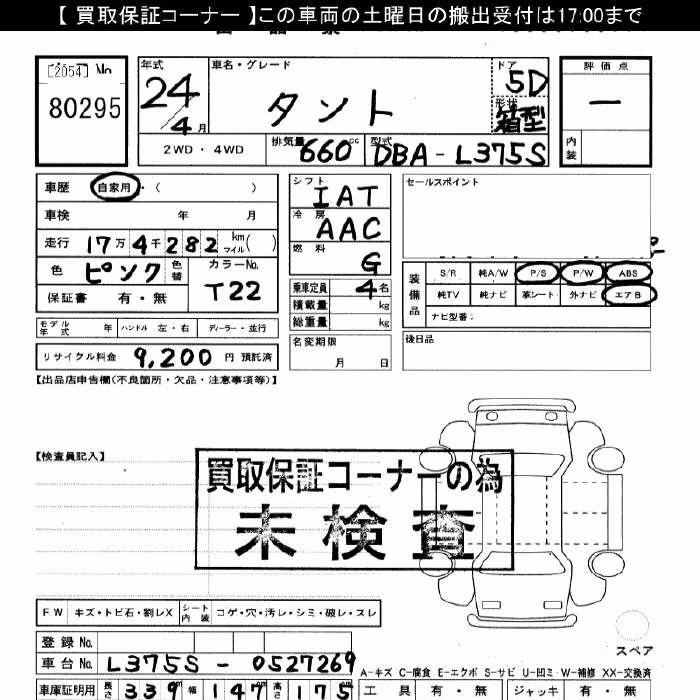 【 買取保証コーナー 】この車両の土曜日の搬出受付は17:00まで
[2054] No
80295
年式 24 4月
車名・グレード タント
ドア 5D
形状 箱型
評価点 —
内装
2WD・4WD
排気量 660 cc
型式 DBA-L375S
車歴 自家用・( )
車検 年 月
走行 17万4千282 km マイル( )
色 ピンク 色替 カラーNo. T22
保証書 有・無
モデル年式 年 ハンドル 左・右 ディーラー・並行
リサイクル料金 9,200 円 預託済
シフト IAT
冷房 AAC
燃料 G
乗車定員 4名
積載量 kg
総重量 kg
名変期限 月 日
セールスポイント
装備品 S/R 純A/W P/S P/W ABS
純TV 純ナビ 革シート 外ナビ エアB
ナビ型番:
後日品
【出品店申告欄(不良箇所・欠品・注意事項等)】
【検査員記入】
買取保証コーナーの為
未検査
FW キズ・トビ石・割レX シート内装 コゲ・穴・汚レ・シミ・破レ・スレ
スペア
登録No.
車台No. L375S-0527269
A-キズ C-腐食 E-エクボ S-サビ U-凹ミ W-補修 XX-交換済
車庫証明用 長さ 339 幅 147 高さ 175
工具 有・無 ジャッキ 有・無